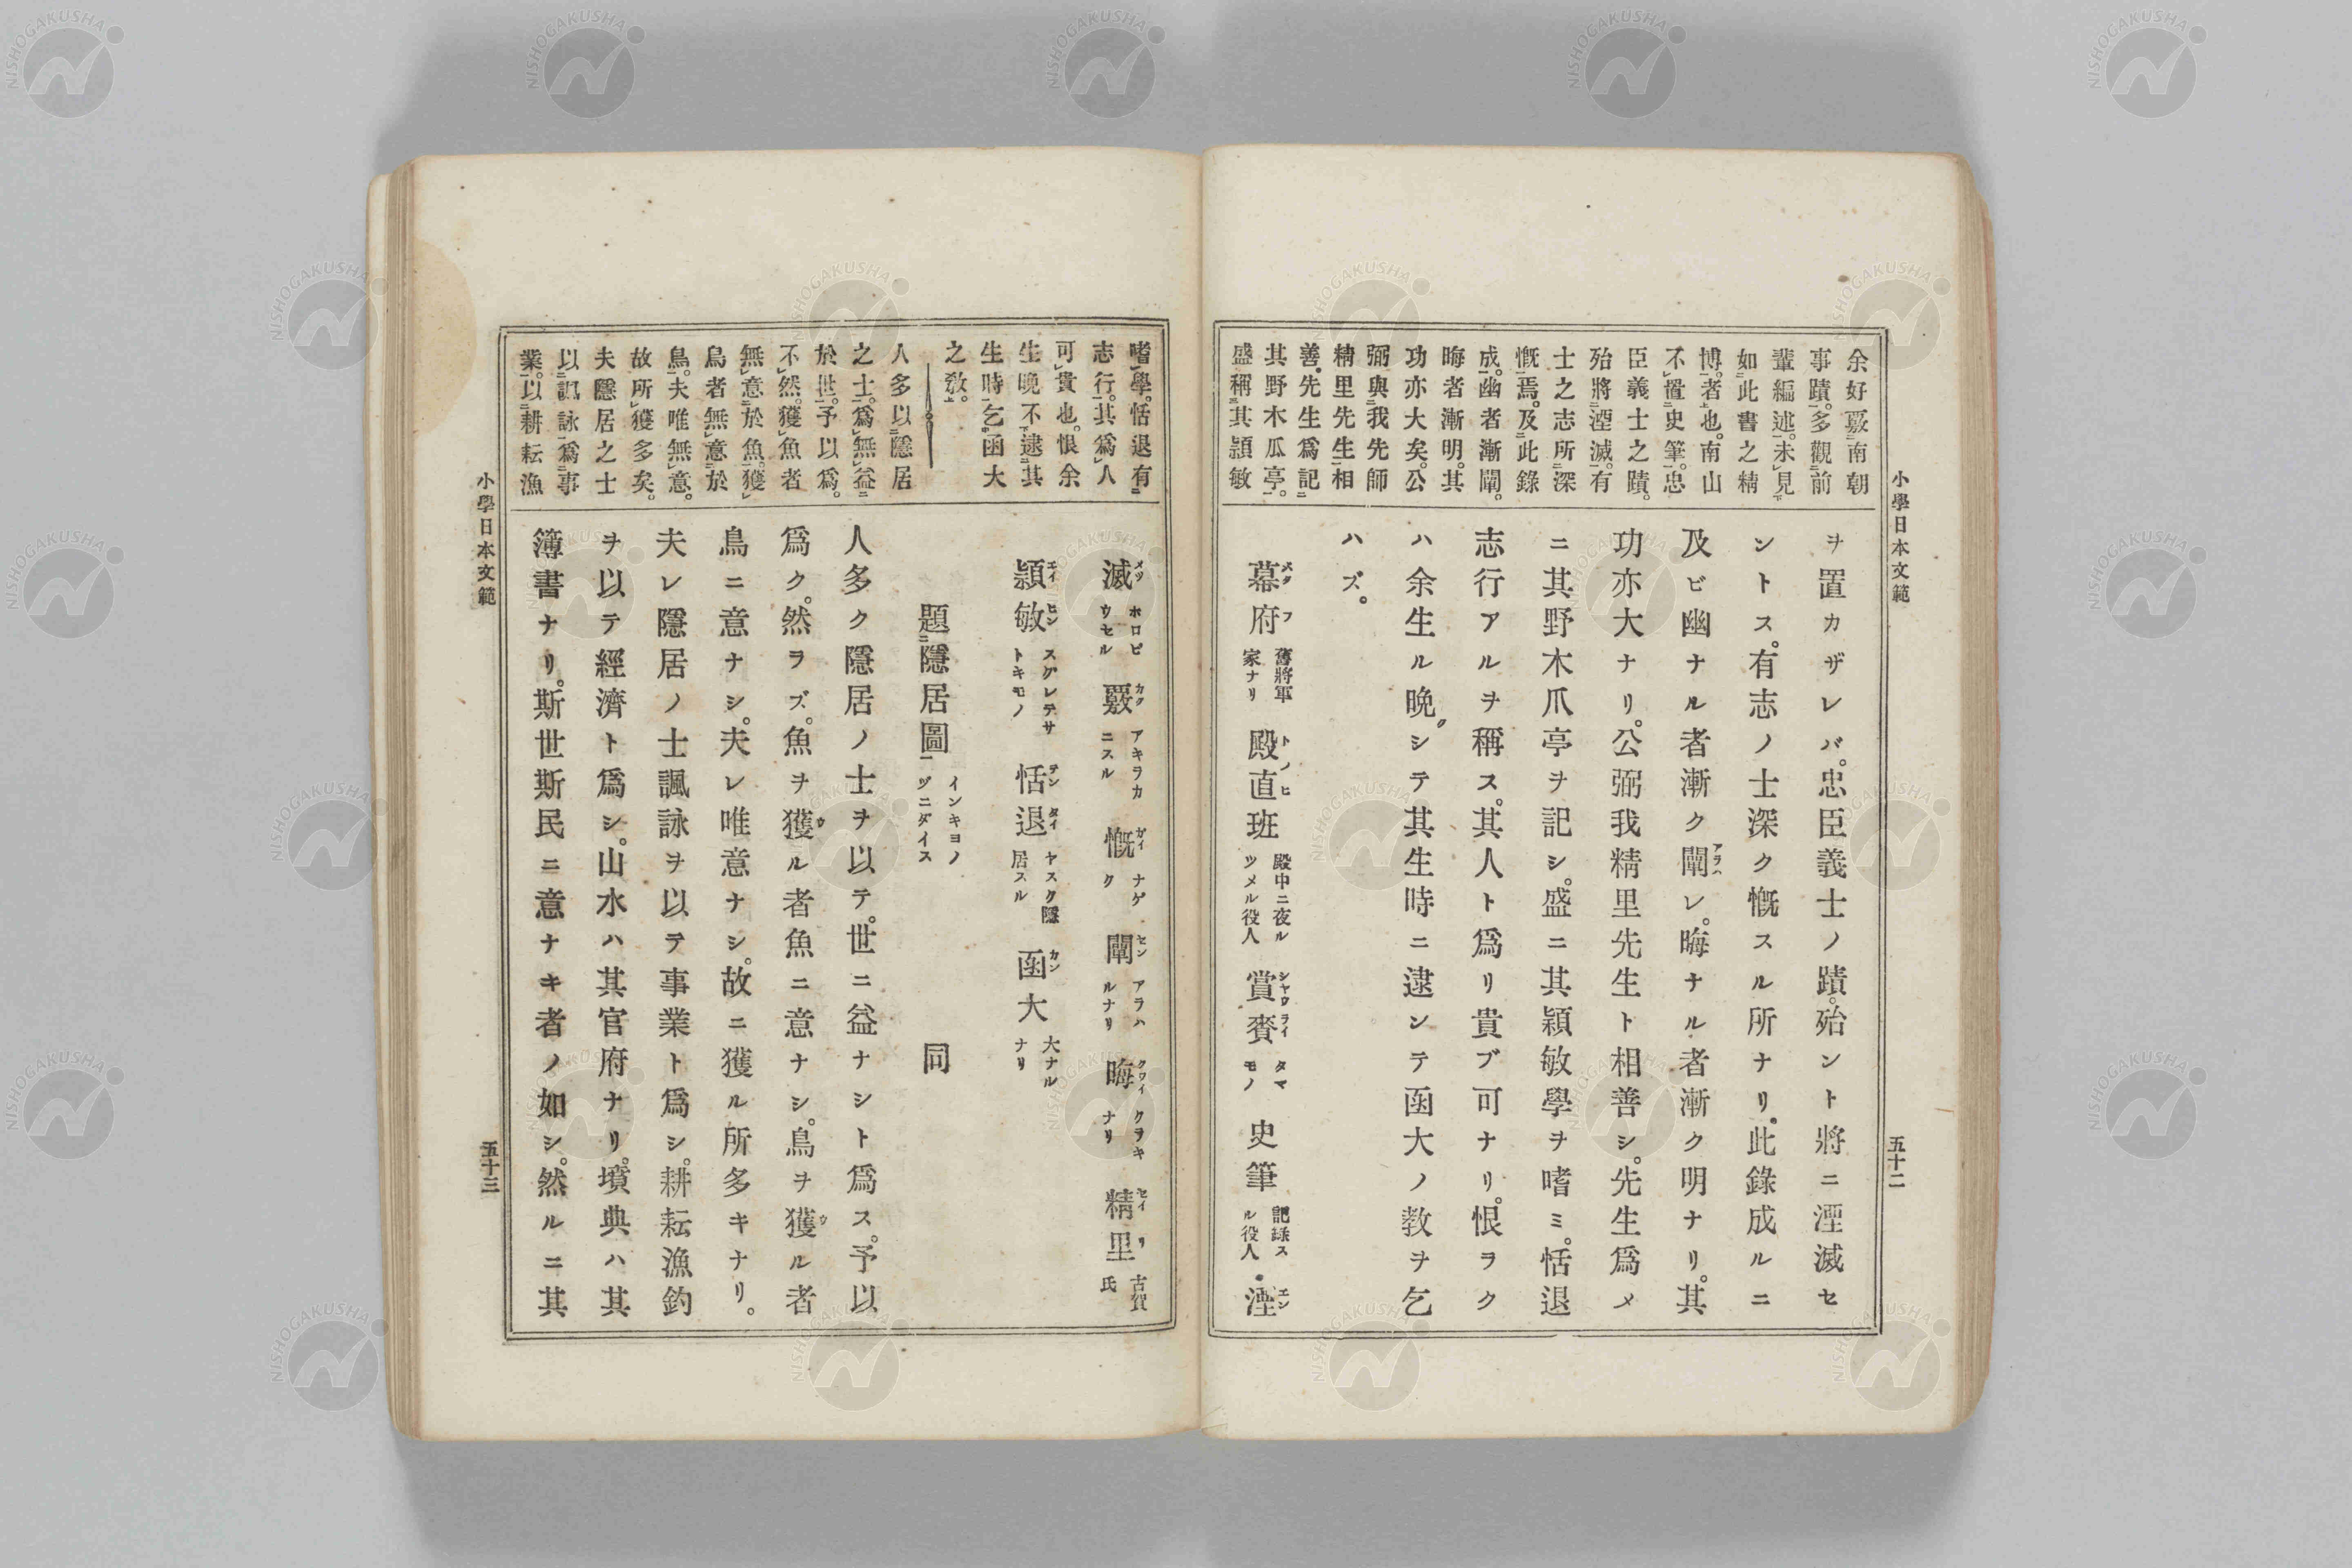 小學日本文範
五十二
余好覈南朝
事蹟。多觀前
輩編述。未見
如此書之精
博者也。南山
不置史筆。忠
臣義士之蹟。
殆將湮滅。有
士之志所深
慨焉。及此錄
成。幽者漸闡。
晦者漸明。其
功亦大矣。公
弼與我先師
精里先生相
善。先生爲記
其野木瓜亭。
盛稱其頴敏
ヲ置カザレバ。忠臣義士ノ蹟。殆ント將ニ湮滅セ
ントス。有志ノ士深ク慨スル所ナリ。此錄成ルニ
及ビ幽ナル者漸ク闡レ。晦ナル者漸ク明ナリ。其
功亦大ナリ。公弼我精里先生ト相善シ。先生爲メ
ニ其野木爪亭ヲ記シ。盛ニ其頴敏學ヲ嗜ミ。恬退
志行アルヲ稱ス。其人ト爲リ貴ブ可ナリ。恨ヲク
ハ余生ル晩クシテ其生時ニ逮ンテ函大ノ敎ヲ乞
ハズ。
幕府 舊將軍家ナリ 殿直班 殿中ニ夜ルツメル役人 賞賚 タマモノ 史筆 記録スル役人 湮
嗜學。恬退有
志行。其爲人
可貴也。恨余
生晩不逮其
生時乞函大
之敎。
人多以隱居
之士。爲無益
於世。予以爲。
不然。獲魚者
無意於魚。獲
鳥者無意於
鳥。夫唯無意。
故所獲多矣。
夫隱居之士
以諷詠爲事
業。以耕耘漁
滅 ホロビウセル 覈 アキラカニスル 慨 ナゲク 闡 アラハルナリ 晦 クヲキナリ 精里 古賀氏
頴敏 スグレテサトキモノ 恬退 ヤスク隱居スル 函大 大ナルナリ
題隱居圖 インキヨノヅニダイス 同
人多ク隱居ノ士ヲ以テ。世ニ益ナシト爲ス。予以
爲ク。然ラズ。魚ヲ獲ル者魚ニ意ナシ。鳥ヲ獲ル者
鳥ニ意ナシ。夫レ唯意ナシ。故ニ獲ル所多キナリ。
夫レ隱居ノ士諷詠ヲ以テ事業ト爲シ。耕耘漁釣
ヲ以テ經濟ト爲シ。山水ハ其官府ナリ。墳典ハ其
簿書ナリ。斯世斯民ニ意ナキ者ノ如シ。然ルニ其
小學日本文範
五十三